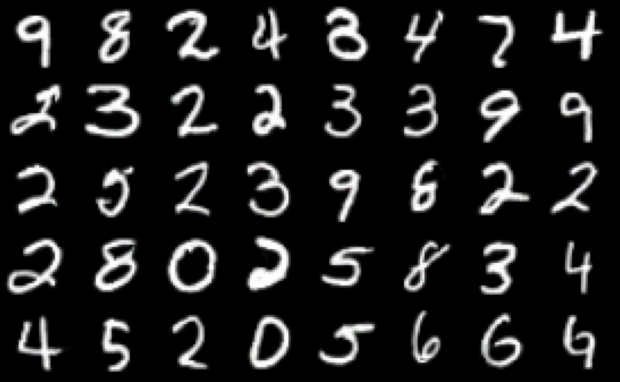 9 8 2 4 3 4 7 4
2 3 2 2 3 3 9 9
2 5 2 3 9 8 2 2
2 8 0 2 5 8 3 4
4 5 2 0 5 6 6